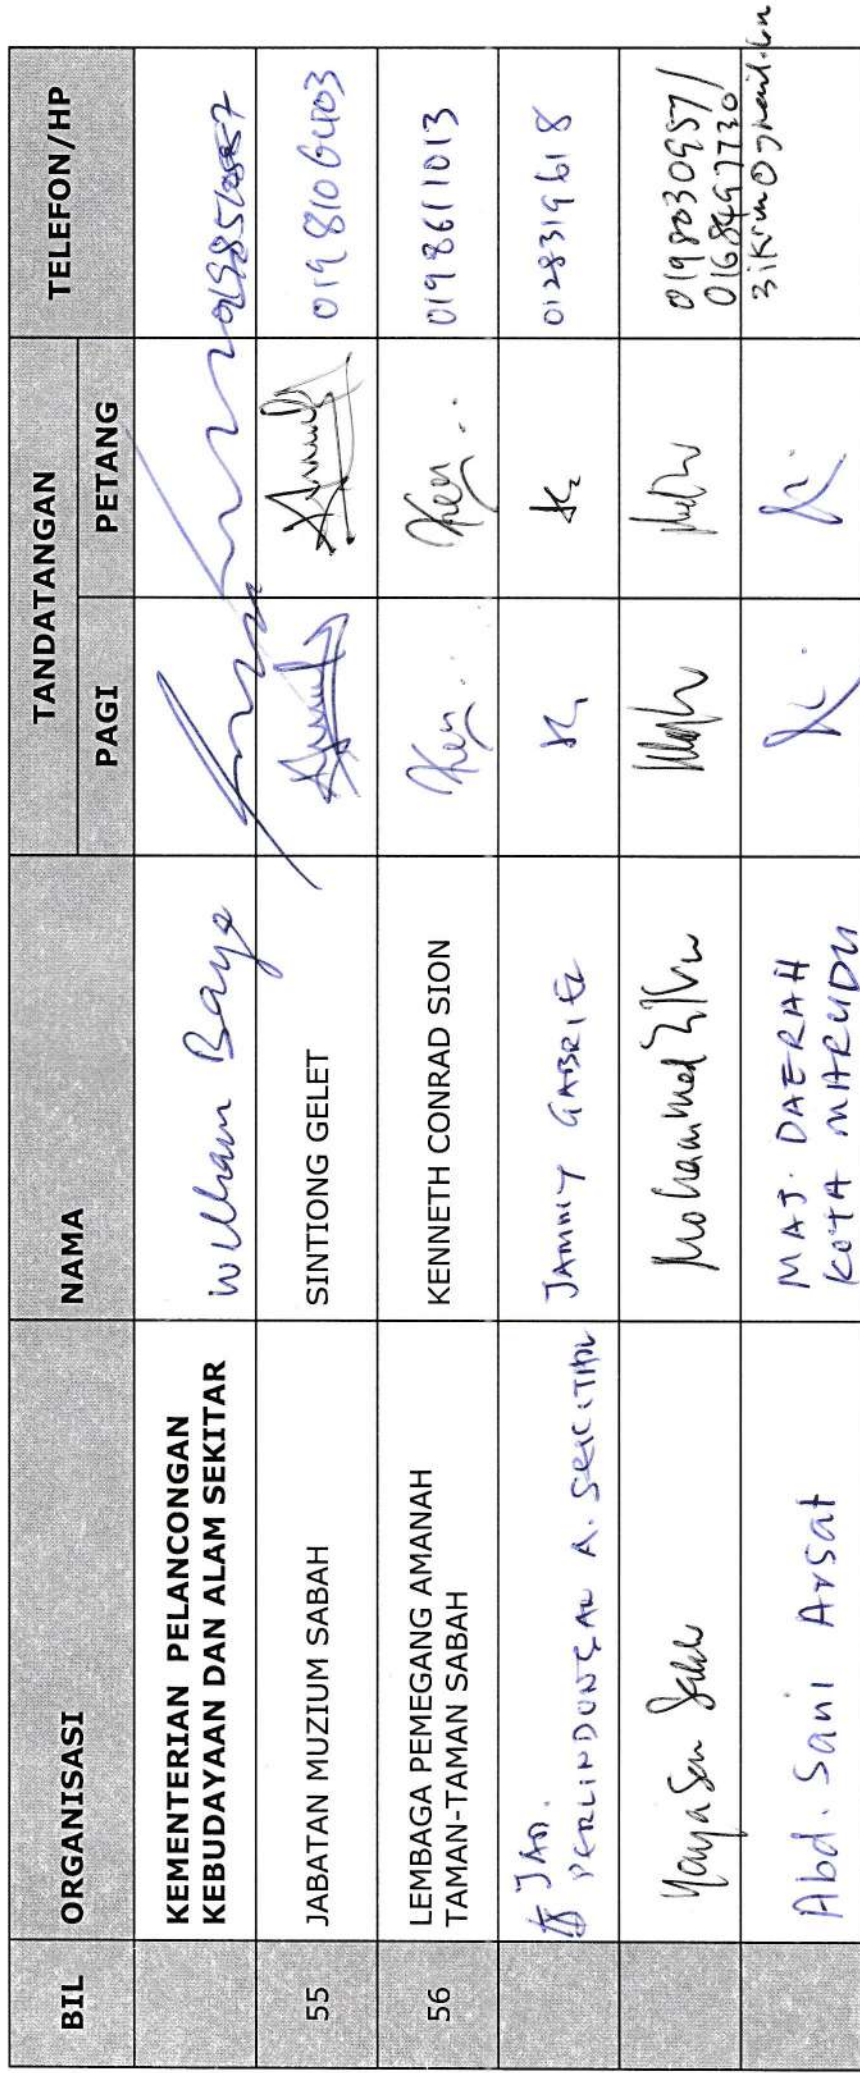 BIL ORGANISASI NAMA TANDATANGAN TELEFON/HP
PAGI PETANG
KEMENTERIAN PELANCONGAN
KEBUDAYAAN DAN ALAM SEKITAR
William Baya
55 JABATAN MUZIUM SABAH SINTIONG GELET 019 8106403
56 LEMBAGA PEMEGANG AMANAH
TAMAN-TAMAN SABAH
KENNETH CONRAD SION Ken Ken 0198611013
JAB.
PERLINDUNGAN A. SEKITAR
JAMMY GABRIEL 0128319618
Mohammed
0198030957/
0168497730
Abd. Sani Arsat
MAJ. DAERAH
KOTA MARUDU